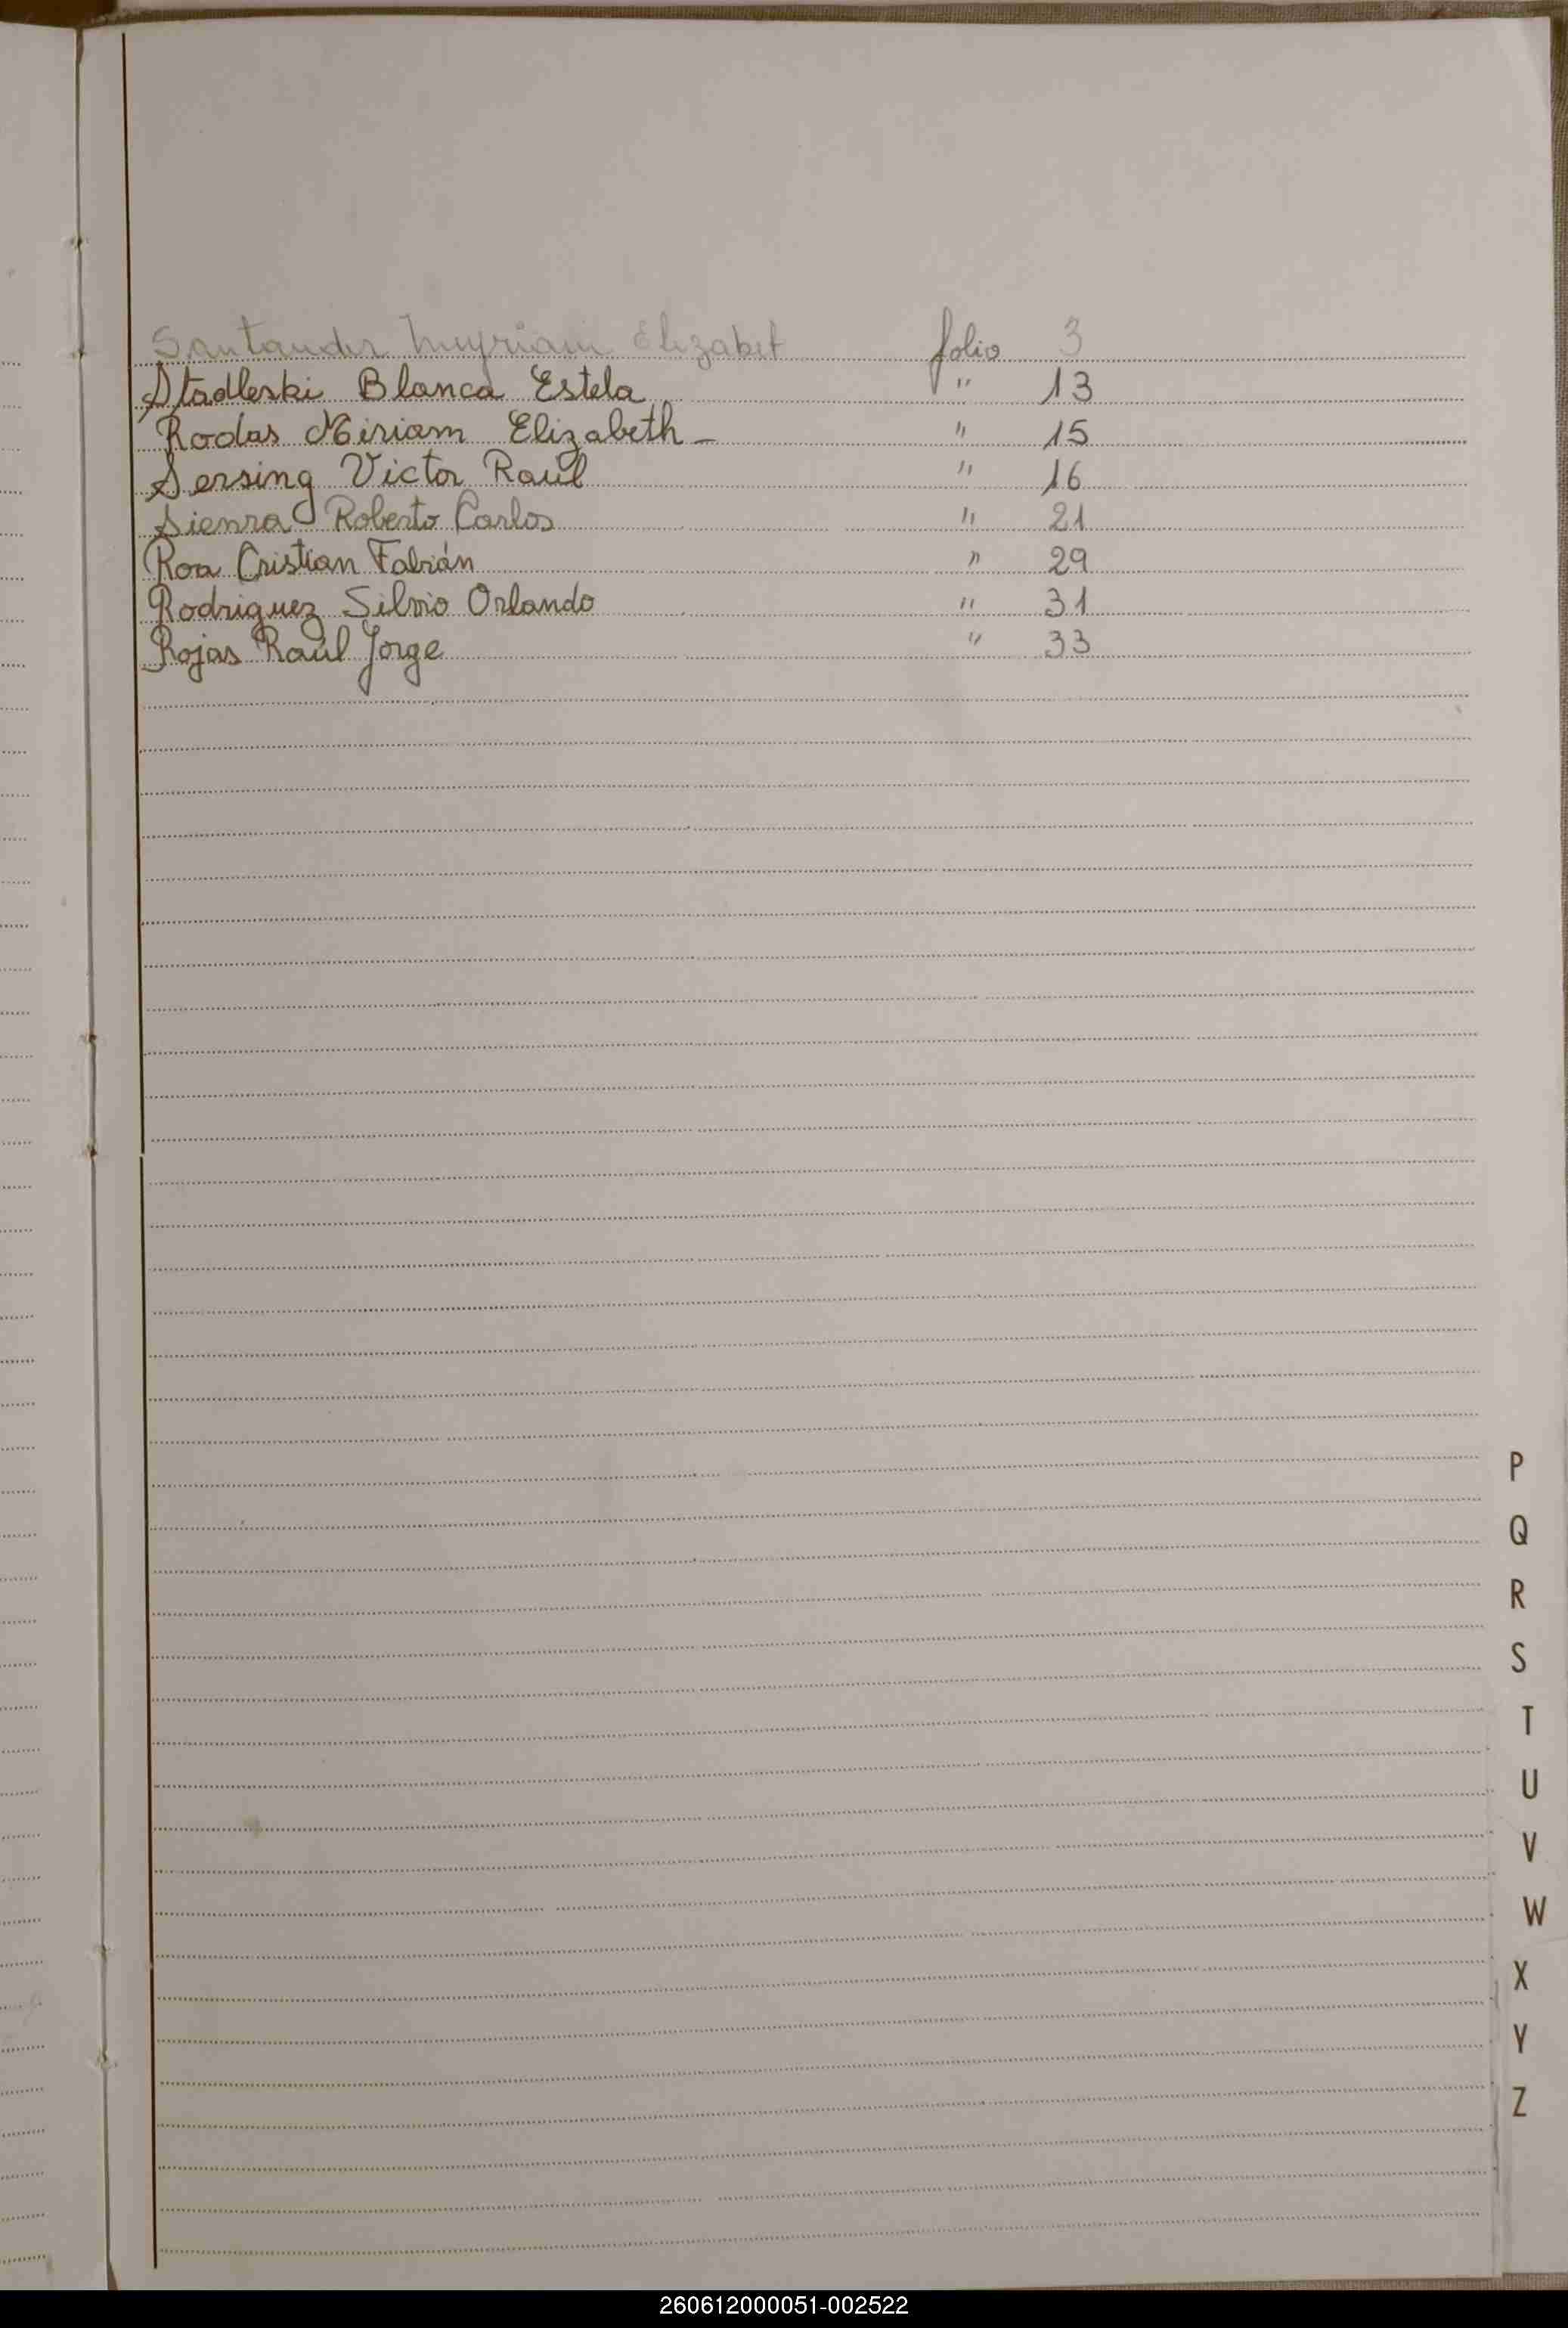 Santander Myriam Elizabet folio 3
Stadleski Blanca Estela " 13
Rodas Miriam Elizabeth - " 15
Sersing Victor Raúl " 16
Sienra Roberto Carlos " 21
Roa Cristian Fabián " 29
Rodriguez Silvio Orlando " 31
Rojas Raúl Jorge " 33
P
Q
R
S
T
U
V
W
X
Y
Z
260612000051-002522